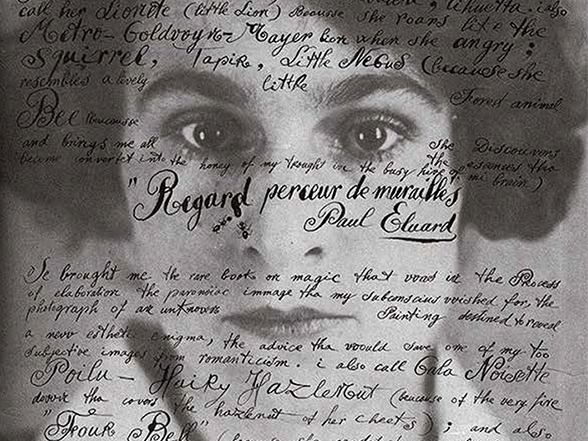 call her Lionete (little Lion) Because she roars like the
Metro-Goldvoyn-Mayer lion when she angry;
Squirrel, Tapir, Little Negus (because she
resembles a lively little Forest animal
Bee (becausse she Discouvers
and brings me all the essences tha
become converted into the honey of my throught in the busy hive of mi brain)
"Regard perceur de murailles
Paul Eluard
Se brought me the rare book on magic that voas in the Process
of elaboration the paranoiac immage tha my subconscius voished for, the
photograph of an unknown Painting destined to reveal
a new esthetic enigma, the advice tha voould save one of my too
subjective images from romanticism. i also call Gala Noisette
Poilu - Hairy Hazlenut (because of the very fine
down tha covers the hazlenut of her cheeks); and also
"Four Bell"